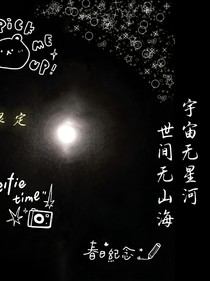 PICK
ME
UP!
宇宙无星河
世间无山海
定
time"
春日紀念